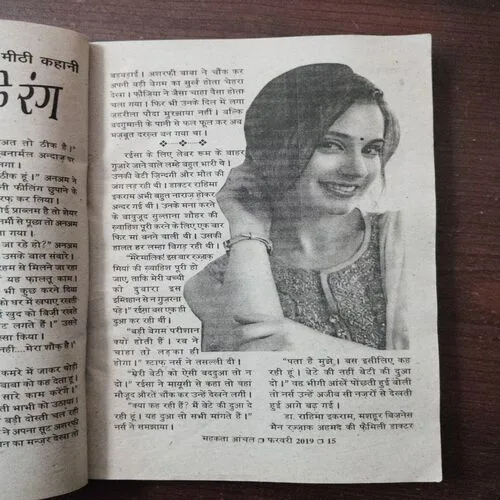 मीठी कहानी
के रंग
अत तो ठीक है।"
बनार्मल अन्दाज़ पर
लगा।
ठीक हूं।" अनअम ने
नी फीलिंग छुपाने के
रफ कर लिया।
कोई प्राब्लम है तो शेयर
र्मी से पूछा तो अनअम
गा।
जा रहे हो?" अनअम
उसके बाल संवारे।
हम से मिलने जा रहा
यह फालतू काम।
भी कुछ करने दिया
को घर में खपाए रखती
खुद को बिजी रखते
ट लगते हैं।" उसने
स्सा किया।
नहीं....मेरा शौक है।"
कमरे में जाकर थोड़ी
बाबा को कह देता हूं।
सारे काम करेंगे।"
ती भाभी को उठाया।
बड़ी दोस्ती चल रही
ने अपना सूट अशरफी
न का मन्ज़र देखा तो
बड़बड़ाई। अशरफी बाबा ने चौंक कर
अपनी बड़ी बेगम का सुर्ख होता चेहरा
देखा। फौजिया ने जैसा चाहा वैसा होता
चला गया। फिर भी उनके दिल में लगा
ज़हरीला पौदा मुरझाया नहीं। बल्कि
बदगुमानी के पानी से फल फूल कर अब
मजबूत दरख्त बन गया था।
रईसा के लिए लेबर रूम के बाहर
गुजारे जाने वाले लम्हे बहुत भारी थे।
उनकी बेटी जिन्दगी और मौत की
जंग लड़ रही थी। डाक्टर राहिमा
इकराम अभी बहुत नाराज़ होकर
अन्दर गई थी। उनके मना करने
के बावुजूद सुल्ताना शौहर की
ख्वाहिश पूरी करने के लिए एक बार
फिर मां बनने वाली थी। उसकी
हालत हर लम्हा बिगड़ रही थी।
"मेरे मालिक! इस बार रज्जाक
मियां की ख्वाहिश पूरी हो
जाए, ताकि मेरी बच्ची
को दुबारा इस
इम्तिहान से न गुज़रना
पड़े।" रईसा बस एक ही
दुआ कर रही थीं।
"बड़ी बेगम परीशान
क्यों होती हैं। रब ने
चाहा तो लड़का ही
होगा।" स्टाफ नर्स ने तसल्ली दी।
"मेरी बेटी को ऐसी बददुआ तो न
दो।" रईसा ने मायूसी से कहा तो वहां
मौजूद औरतें चौंक कर उन्हें देखने लगीं।
"क्या कह रही हैं? मैं बेटे की दुआ दे
रही हूं। यह दुआ तो सभी मांगते हैं।"
नर्स ने समझाया।
"पता है मुझे। बस इसीलिए कह
रही हूं। बेटे की नहीं बेटी की दुआ
दो।" वह भीगी आंखें पोंछती हुई बोलीं
तो नर्स उन्हें अजीब सी नजरों से देखती
हुई आगे बढ़ गई।
डा. राहिमा इकराम, मशहूर बिज़नेस
मैन रज्जाक अहमद की फैमिली डाक्टर
महकता आंचल ❏ फरवरी 2019 ❏ 15